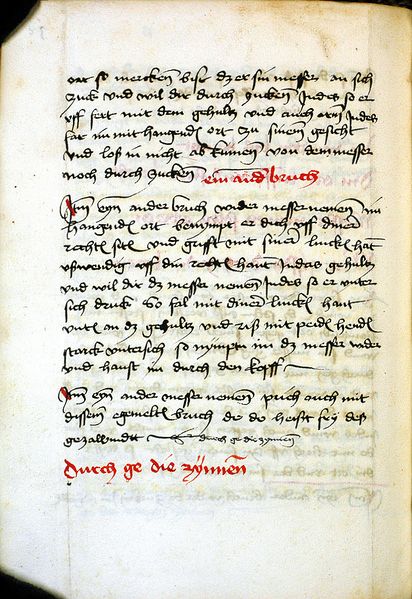 ort so mercken bist dz er sin messer an sich
zuck und wil dir durch zucken Indes so er
uff fert mit dem gehultz und auch Indes
far im mit hangendem ort zu sinem gesicht
und loß in nicht ab kumen von dem messer
noch durch zucken ein and bruch
Item eyn ander bruch wider messer nemen im
hangenden ort kumpt er dich uff diner
rechten siten und grifft mit siner lincken hant
ußwendig uff din rechten hant Indas gehultz
und wil dir dz messer nemen Indes so er unter
sich druck so fal mit diner lincken hant
unten an dz gehultz und riß mit peiden henden
starck untersich so nympstu im dz messer wider
und haust im durch den kopff
Item eyn ander messer nemen prich auch mit
dissem egemelten bruch do do heist sey des
gezallmidtt durch ge die zynnen
Durch ge die zynnen